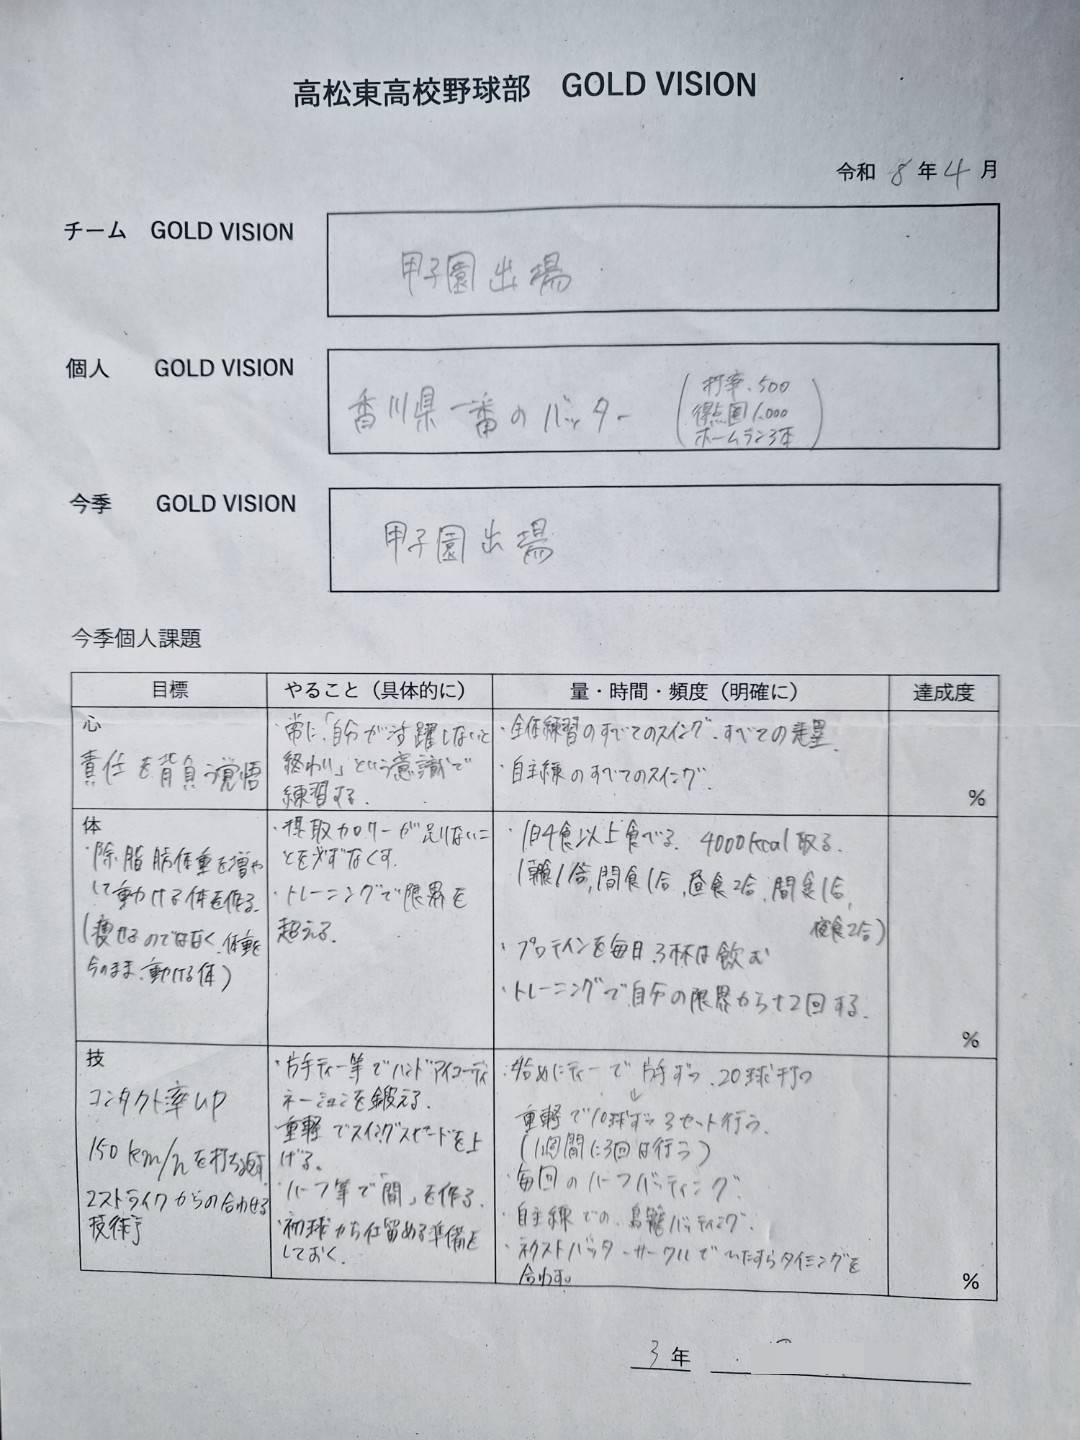 高松東高校野球部 GOLD VISION
令和 8 年 4 月
チーム GOLD VISION
甲子園出場
個人 GOLD VISION
香川県一番のバッター
(打率.500
得点圏1.000
ホームラン3本)
今季 GOLD VISION
甲子園出場
今季個人課題
目標 やること（具体的に） 量・時間・頻度（明確に） 達成度
心
責任を背負う覚悟
・常に「自分が活躍しないと
終わり」という意識で
練習する.
・全体練習のすべてのスイング、すべての走塁.
・自主練のすべてのスイング.
%
体
・除脂肪体重を増や
して動ける体を作る.
(痩せるのではなく、体重を
今のまま、動ける体)
・摂取カロリーが足りないこ
とを必ずなくす.
・トレーニングで限界を
超える.
・1日4食以上食べる. 4000kcal取る.
(朝食1合,間食1合,昼食2合,間食1合,
夜食2合)
・プロテインを毎日3杯は飲む
・トレーニングで自分の限界から+2回する.
%
技
コンタクト率UP
150km/hを打ち返す
2ストライクからの合わせる
技術
・片手ティー等でハンドアイコーディ
ネーションを鍛える.
重軽でスイングスピードを上
げる。
・ハーフ等で「間」を作る.
・初球から仕留める準備を
しておく.
・始めにティーで片手ずつ、20球打つ
↓
重軽で10球ずつ3セット行う.
(1週間に3回は行う)
・毎回のハーフバッティング.
・自主練での、鳥籠バッティング.
・ネクストバッターサークルでひたすらタイミングを
合わす。
%
3 年